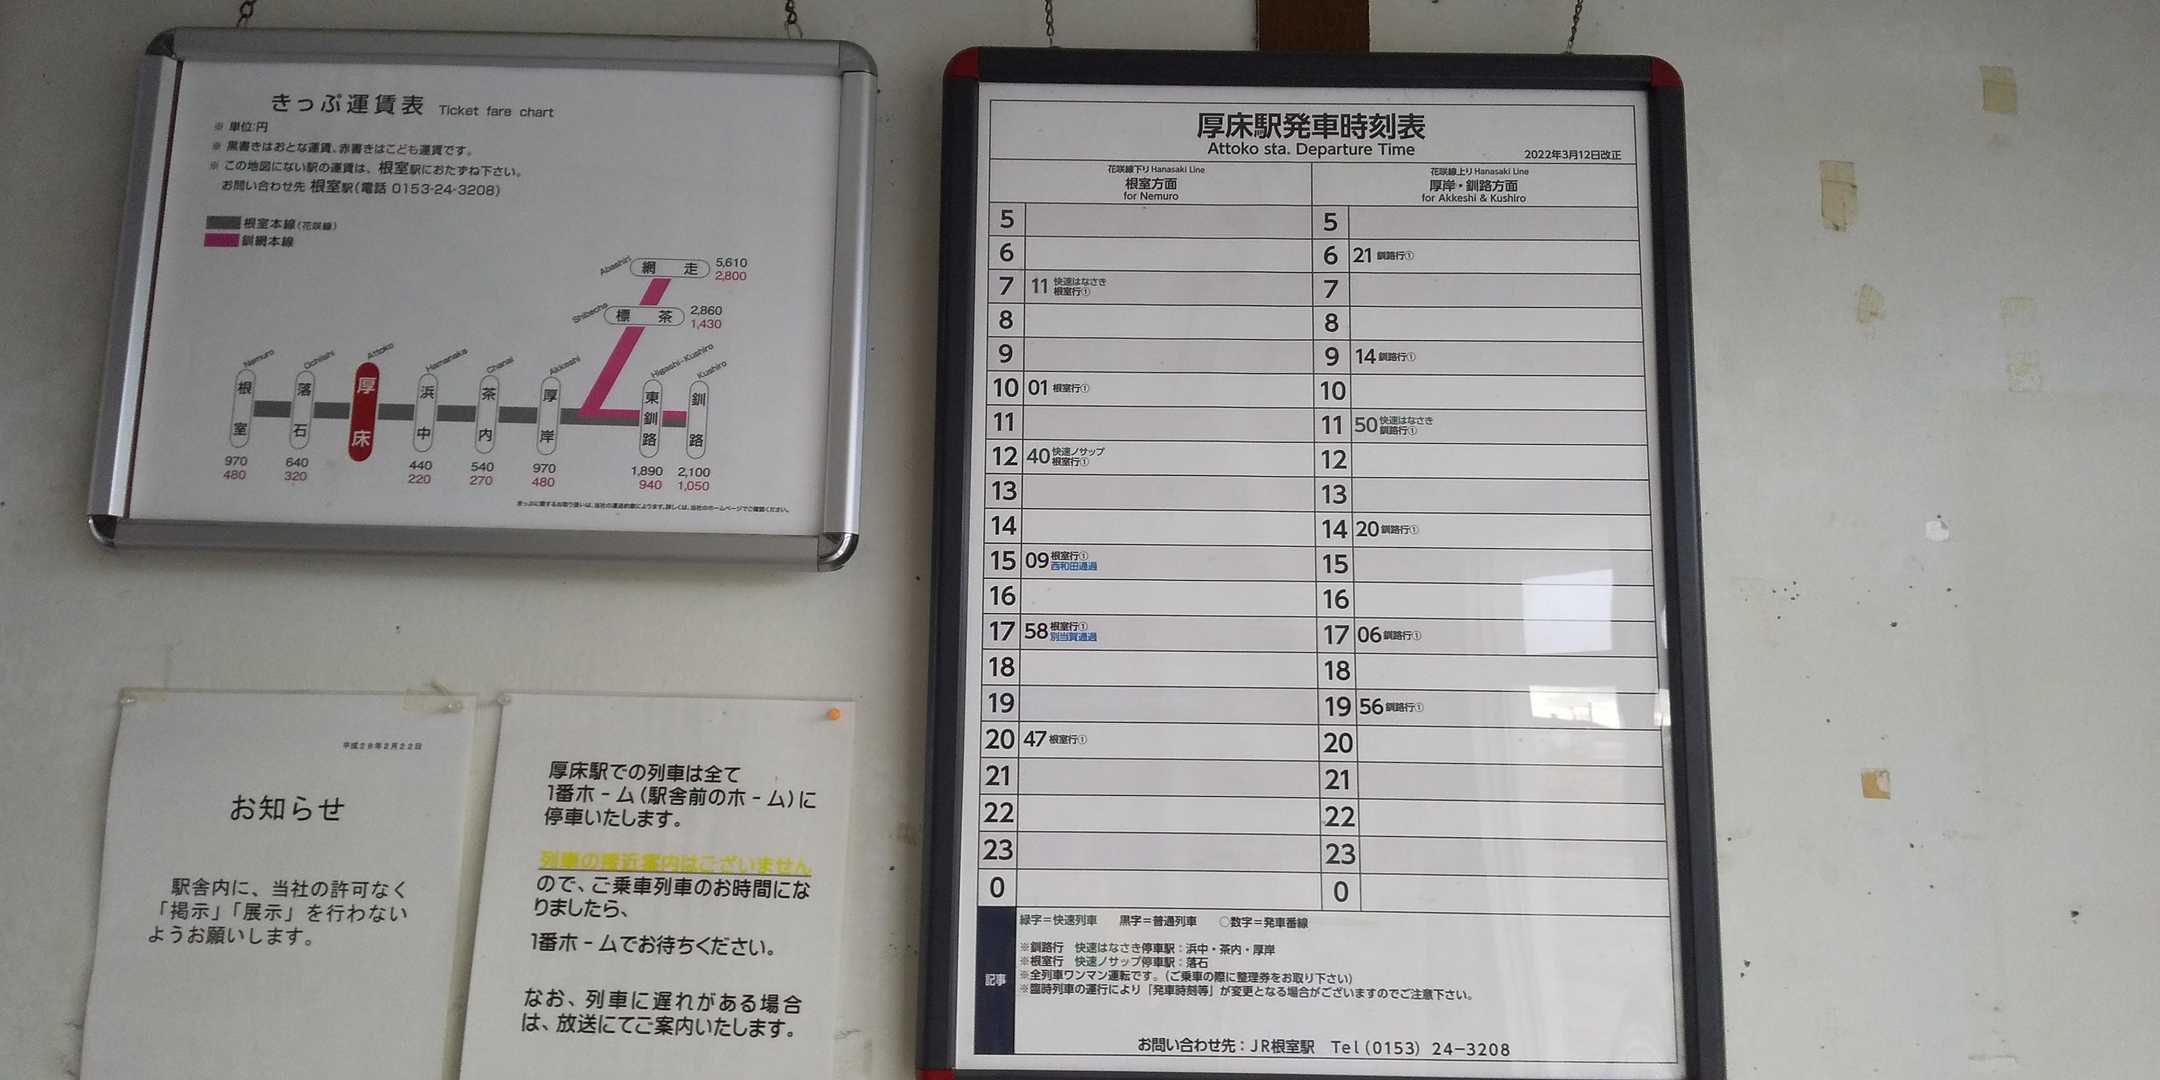 きっぷ運賃表 Ticket fare chart
※ 単位:円
※ 黒書きはおとな運賃、赤書きはこども運賃です。
※ この地図にない駅の運賃は、根室駅におたずね下さい。
お問い合わせ先 根室駅(電話 0153-24-3208)
根室本線(花咲線)
釧網本線
Abashiri 網走 5,610
2,800
Shibecha 標茶 2,860
1,430
Nemuro Ochiishi Attoko Hamanaka Chanai Akkeshi Higashi-Kushiro Kushiro
根室 落石 厚床 浜中 茶内 厚岸 東釧路 釧路
970 640 440 540 970 1,890 2,100
480 320 220 270 480 940 1,050
きっぷに関するお取り扱いは、当社の運送約款によります。詳しくは、当社のホームページでご確認ください。
平成28年2月22日
お知らせ
駅舎内に、当社の許可なく
「掲示」「展示」を行わない
ようお願いします。
厚床駅での列車は全て
1番ホ-ム(駅舎前のホ-ム)に
停車いたします。
列車の接近案内はございません
ので、ご乗車列車のお時間にな
りましたら、
1番ホ-ムでお待ちください。
なお、列車に遅れがある場合
は、放送にてご案内いたします。
厚床駅発車時刻表
Attoko sta. Departure Time
2022年3月12日改正
花咲線下り Hanasaki Line
根室方面
for Nemuro
花咲線上り Hanasaki Line
厚岸・釧路方面
for Akkeshi & Kushiro
5 5
6 6 21 釧路行①
7 11 快速はなさき 根室行① 7
8 8
9 9 14 釧路行①
10 01 根室行① 10
11 11 50 快速はなさき 釧路行①
12 40 快速ノサップ 根室行① 12
13 13
14 14 20 釧路行①
15 09 根室行① 西和田通過 15
16 16
17 58 根室行① 別当賀通過 17 06 釧路行①
18 18
19 19 56 釧路行①
20 47 根室行① 20
21 21
22 22
23 23
0 0
記事
緑字=快速列車 黒字=普通列車 ○数字=発車番線
※釧路行 快速はなさき停車駅:浜中・茶内・厚岸
※根室行 快速ノサップ停車駅:落石
※全列車ワンマン運転です。(ご乗車の際に整理券をお取り下さい)
※臨時列車の運行により「発車時刻等」が変更となる場合がございますのでご注意下さい。
お問い合わせ先:JR根室駅 Tel(0153) 24-3208